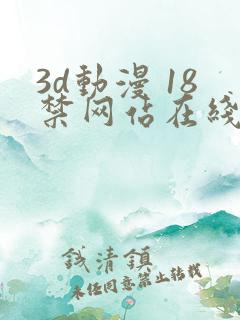 3d動漫 18
禁网站在线
钱清鎮
未经同意禁止转载